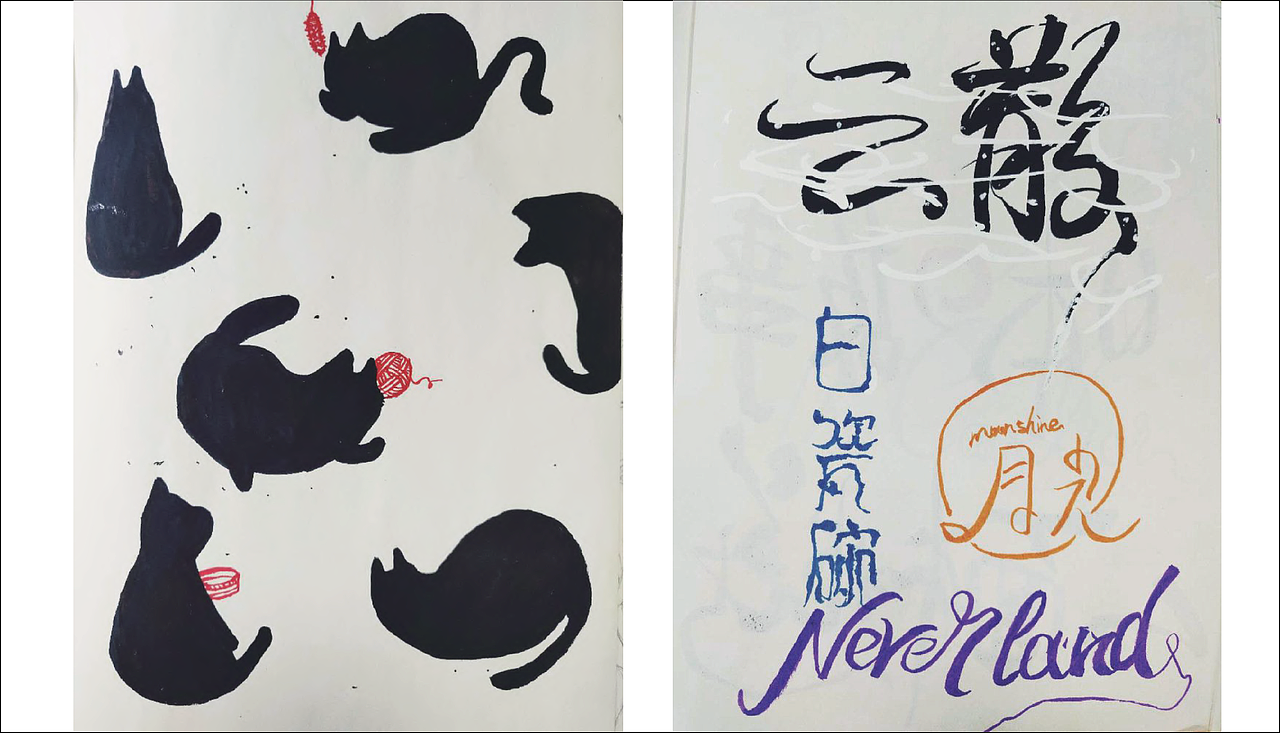 云散
白瓷碗
moonshine
月光
Neverland